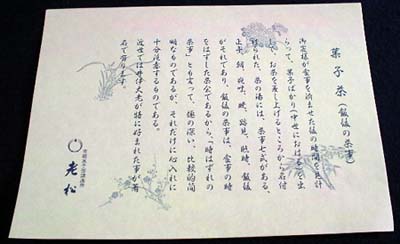 菓子茶(飯後の茶事)
御客様が食事を済ませた後の時間を見計
らって、菓子ばかり(中世におはる)を出
して、お茶を差し上げるところから名付
けられた。茶の湯には、茶事七式がある、
正午、朝、夜咄、暁、跡見、臨時、飯後
がそれであり、飯後の茶事は、食事の時
をはずした茶会であるから、「時はずれの
茶事」とも言って、趣の深い、比較的簡
明なものであるが、それだけに心入れに
十分注意するものである。
近世では井伊大老が特に好まれた事が著
名で有ります。
老松